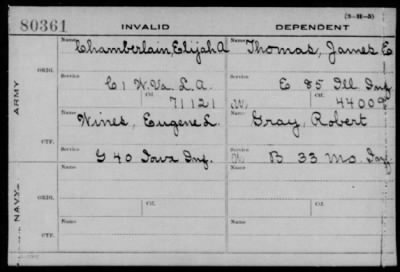 (3-11-5)
80361 INVALID DEPENDENT
Name Chamberlain, Elijah A Name Thomas, James E
ARMY
ORIG. Service C 1 W. Va. L. A. Service E 85 Ill Inf
Ctf. 71121 W. Ctf. 44009
Name Wines, Eugene L. Name Gray, Robert
CTF. Service G 40 Iowa Inf. Service B 33 Mo. Inf
NAVY
Name Name
ORIG. Service Service
Ctf. Ctf.
Name Name
CTF. Service Service